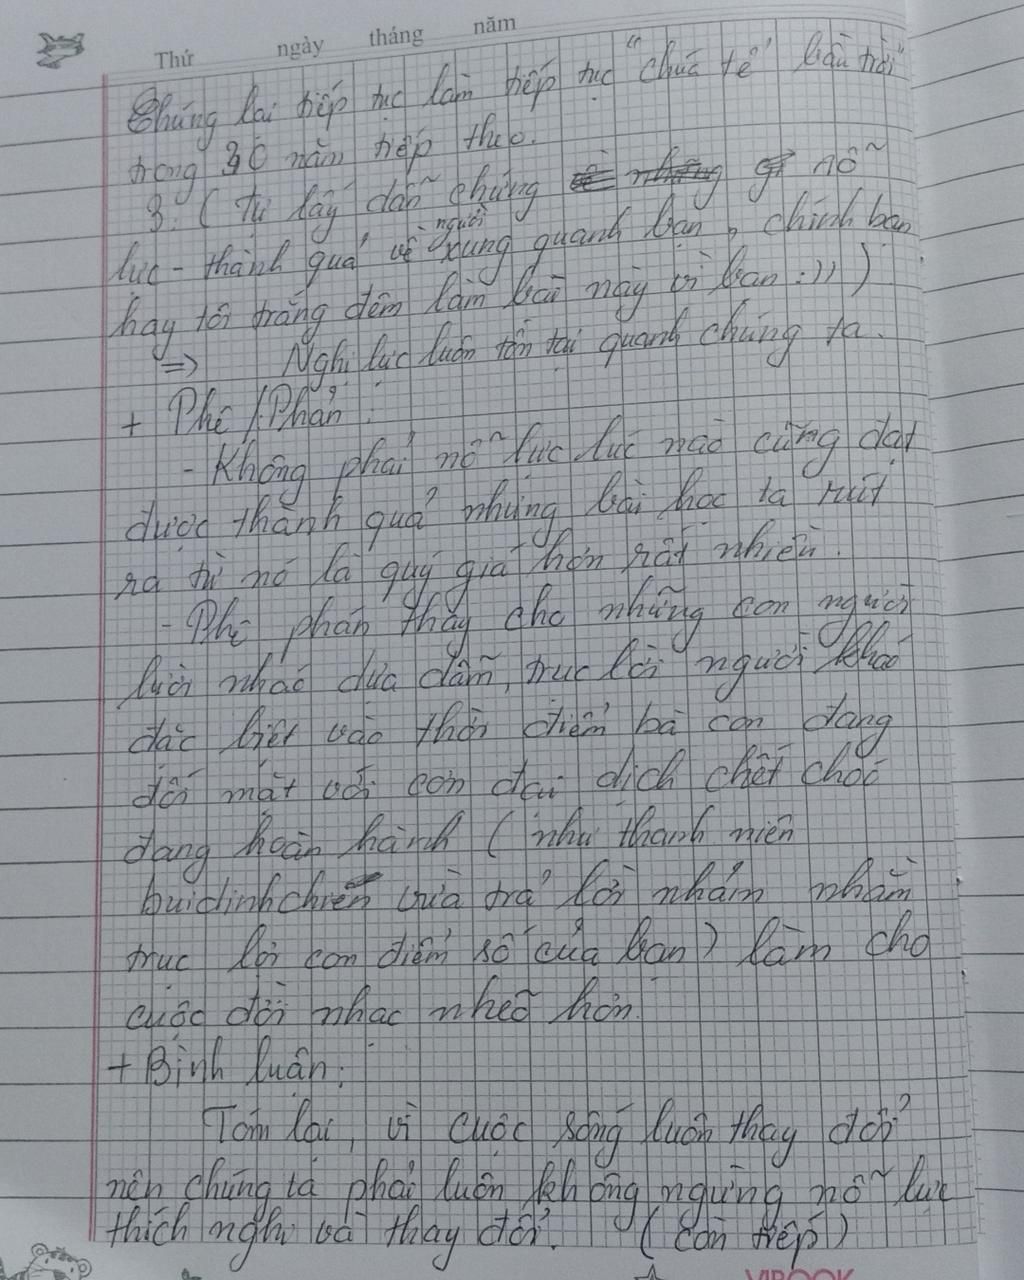 Thứ ngày tháng năm
Chúng lại tiếp tục làm tiếp tục "chúa tể" bầu trời"
trong 30 năm tiếp theo.
3. (Tự lấy dẫn chứng nỗ
lực - thành quả về người xung quanh bạn, chính bạn
hay tôi trắng đêm làm bài này vì bạn :)))
=> Nghị lực luôn tồn tại quanh chúng ta.
+ Phê /Phán:
- Không phải nỗ lực lúc nào cũng đạt
được thành quả nhưng bài học ta rút
ra từ nó là quý giá hơn rất nhiều.
- Phê phán thay cho những con người
lười nhác dựa dẫm, trục lợi người khác
đặc biệt vào thời điểm bà con đang
đối mặt với cơn đại dịch chết chóc
đang hoàn hành (như thanh niên
buidinhchien vừa trả lời nhảm nhằm
trục lợi con điểm số của bạn) làm cho
cuộc đời nhạc nhẽo hơn.
+ Bình luận:
Tóm lại, vì cuộc sống luôn thay đổi
nên chúng ta phải luôn không ngừng nỗ lực
thích nghi và thay đổi. (còn tiếp)
VIBOOK